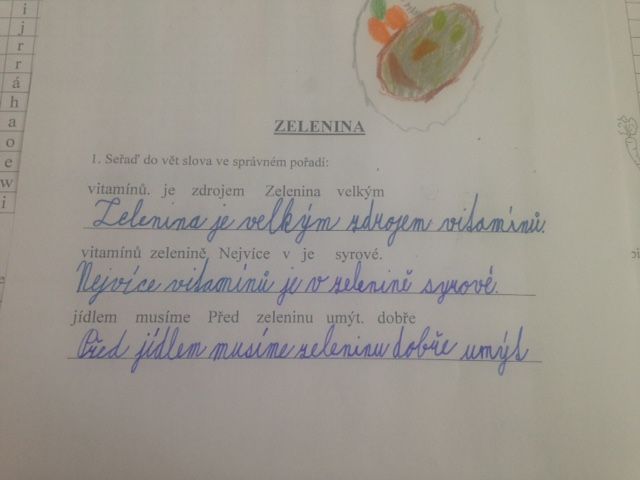 i
j
r
r
á
h
a
o
e
w
i
ZELENINA
1. Seřaď do vět slova ve správném pořadí:
vitamínů. je zdrojem Zelenina velkým
Zelenina je velkým zdrojem vitamínů.
vitamínů zelenině Nejvíce v je syrové.
Nejvíce vitamínů je v zelenině syrové.
jídlem musíme Před zeleninu umýt. dobře
Před jídlem musíme zeleninu dobře umýt